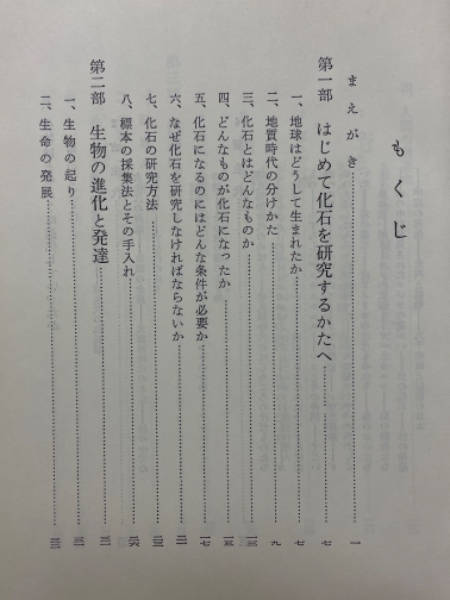 もくじ
まえがき……一
第一部 はじめて化石を研究するかたへ……七
一、地球はどうして生まれたか……七
二、地質時代の分けかた……九
三、化石とはどんなものか……一三
四、どんなものが化石になったか……一五
五、化石になるのにはどんな条件が必要か……一七
六、なぜ化石を研究しなければならないか……二一
七、化石の研究方法
八、標本の採集法とその手入れ……二六
第二部 生物の進化と発達……三一
一、生物の起り……三一
二、生命の発展